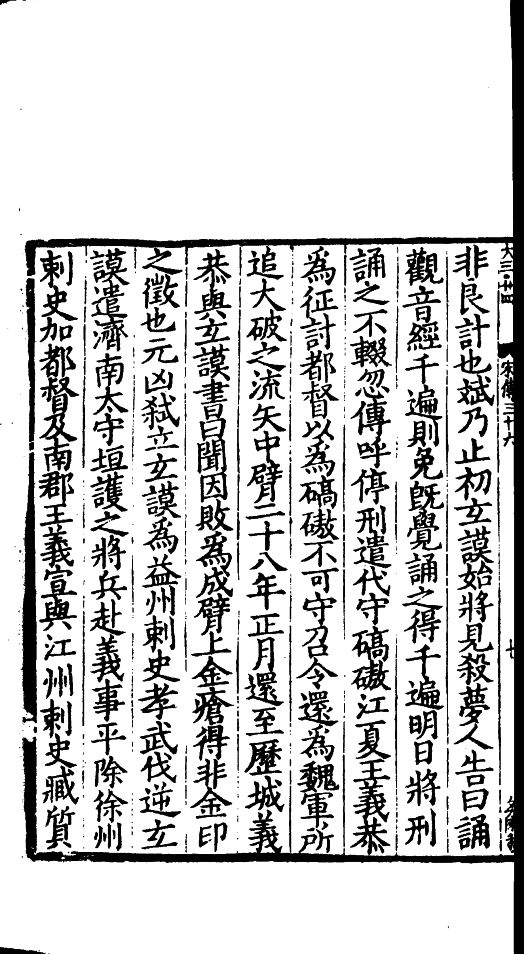 非良計也斌乃止初玄謨始將見殺夢人告曰誦
觀音經千遍則免旣覺誦之得千遍明日將刑
誦之不輟忽傳呼停刑遣代守碻磝江夏王義恭
爲征討都督以爲碻磝不可守召令還爲魏軍所
追大破之流矢中臂二十八年正月還至歷城義
恭與玄謨書曰聞因敗爲成臂上金瘡得非金印
之徵也元凶弒立玄謨爲益州刺史孝武伐逆玄
謨遣濟南太守垣護之將兵赴義事平除徐州
刺史加都督及南郡王義宣與江州刺史臧質